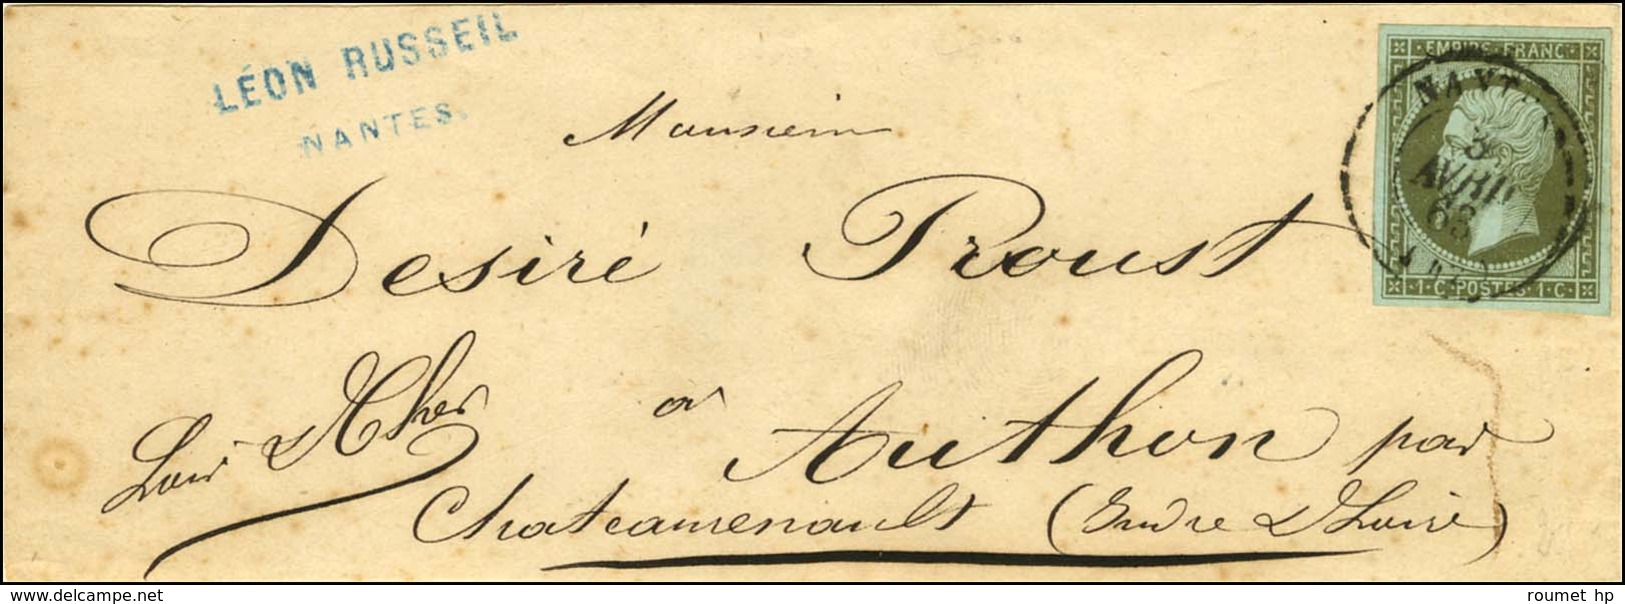 LÉON RUSSEIL
NANTES.
EMPIRE·FRANC·
3
AVRIL
63
1·C·POSTES·1·C·
Monsieur
Desiré Proust
à Authon par
Loir & Cher
Chateaurenault (Indre & Loire)
delcampe.net
roumet hp